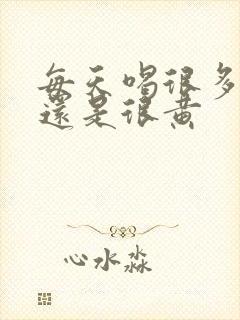 每天喝很多
還是很黃
心水淼